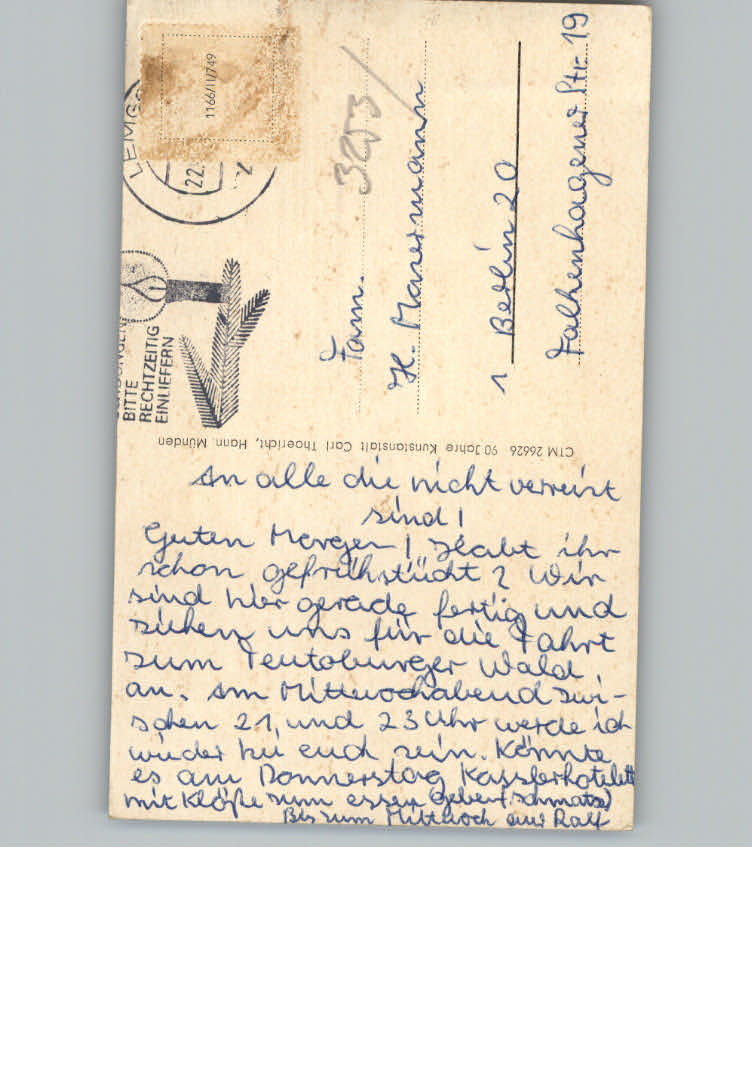 An alle die nicht verreist
sind!
Guten Morgen! Habt ihr
schon gefrühstückt? Wir
sind hier gerade fertig und
ziehen uns für die Fahrt
zum Teutoburger Wald
an. Am Mittwochabend zwi-
schen 21 und 23 Uhr werde ich
wieder bei euch sein. Könnte
es am Donnerstag Kasslerkotelett
mit Klöße zum essen geben (schmatz)
Bis zum Mittwoch euer Ralf
CTM 26626 90 Jahre Kunstanstalt Carl Thoericht, Hann. Münden
1166/II/749
LEMGO
22.
BITTE
RECHTZEITIG
EINLIEFERN
3203
Fam.
H. Masermann
1 Berlin 20
Falkenhagener Str. 19